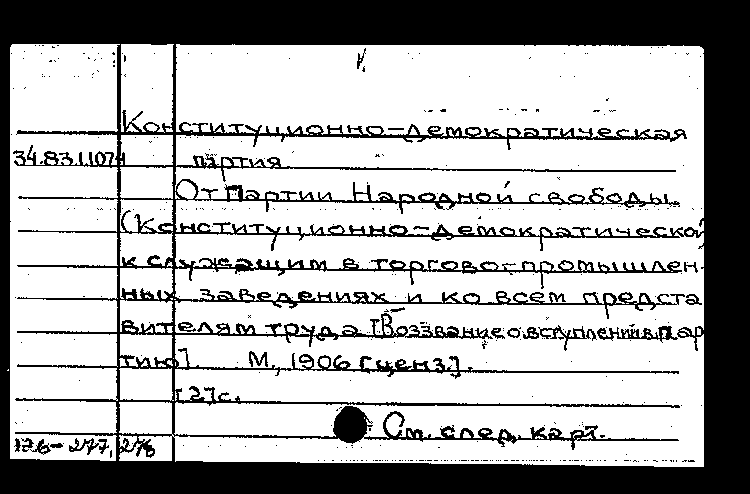 Конституционно-демократическая
34.83.1.1074 партия
От Партии Народной свободы.
(Конституционно-демократической
к служащим в торгово-промышлен-
ных заведениях и ко всем предста
вителям труда [Воззвание о вступлении в пар
тию]. М., 1906 [ценз.].
[2]с.
См. след. карт.
277, 278